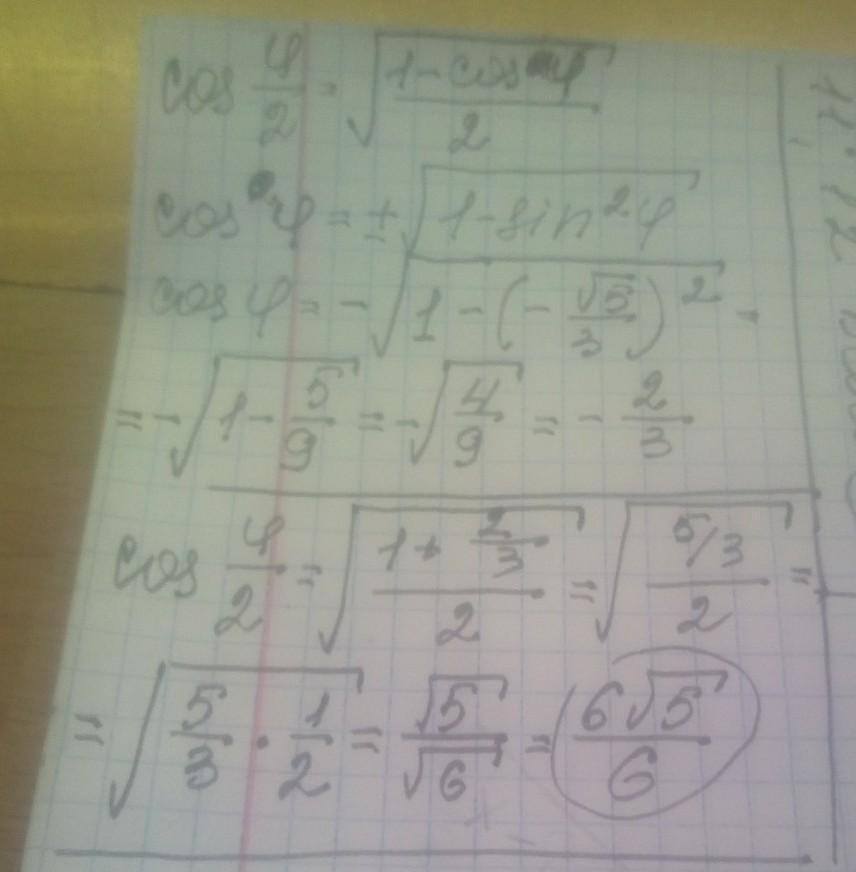 cos φ/2 = √((1-cos φ)/2)
cos φ = ±√(1-sin²φ)
cos φ = -√(1-(-√5/3)²) =
= -√(1-5/9) = -√(4/9) = -2/3
cos φ/2 = √((1+2/3)/2) = √((5/3)/2) =
= √(5/3 · 1/2) = √5/√6 = 6√5/6